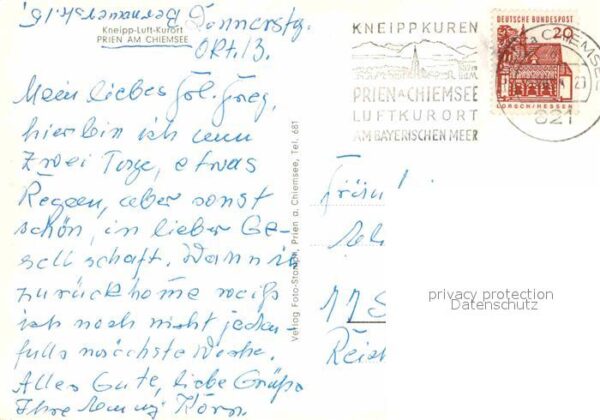 Bernauerstr. 15.
Kneipp-Luft-Kurort
PRIEN AM CHIEMSEE
Donnerstg.
Okt. 13.
Mein liebes Frl.
hier bin ich nun
zwei Tage, etwas
Regen, aber sonst
schön, in lieber Ge-
sellschaft. Wann ich
zurückkomme weiß
ich noch nicht jeden-
falls nächste Woche.
Alles Gute, liebe Grüße
Ihre
Verlag Foto-Stoffel, Prien a. Chiemsee, Tel. 681
KNEIPPKUREN
PRIEN A CHIEMSEE
LUFTKURORT
AM BAYERISCHEN MEER
DEUTSCHE BUNDESPOST
20
LORSCH/HESSEN
a CHIEMSEE
821
privacy protection
Datenschutz